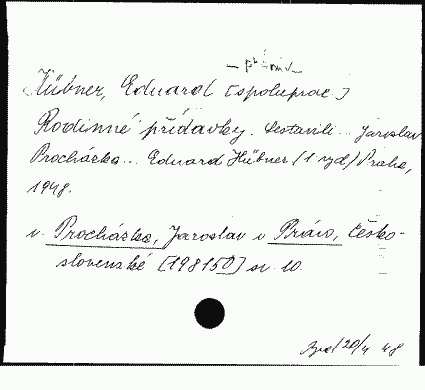 Hübner, Eduard [spoluprac.]
Rodinné přídavky. Sestavili... Jaroslav
Procházka... Eduard Hübner (1 vyd.) Praha,
1948.
v. Procházka, Jaroslav v Právo, Česko-
slovenské [198150] sv. 10.
20/4 48